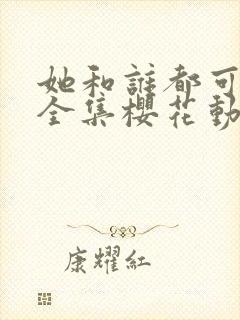 她和誰都可
全集櫻花動
康耀紅